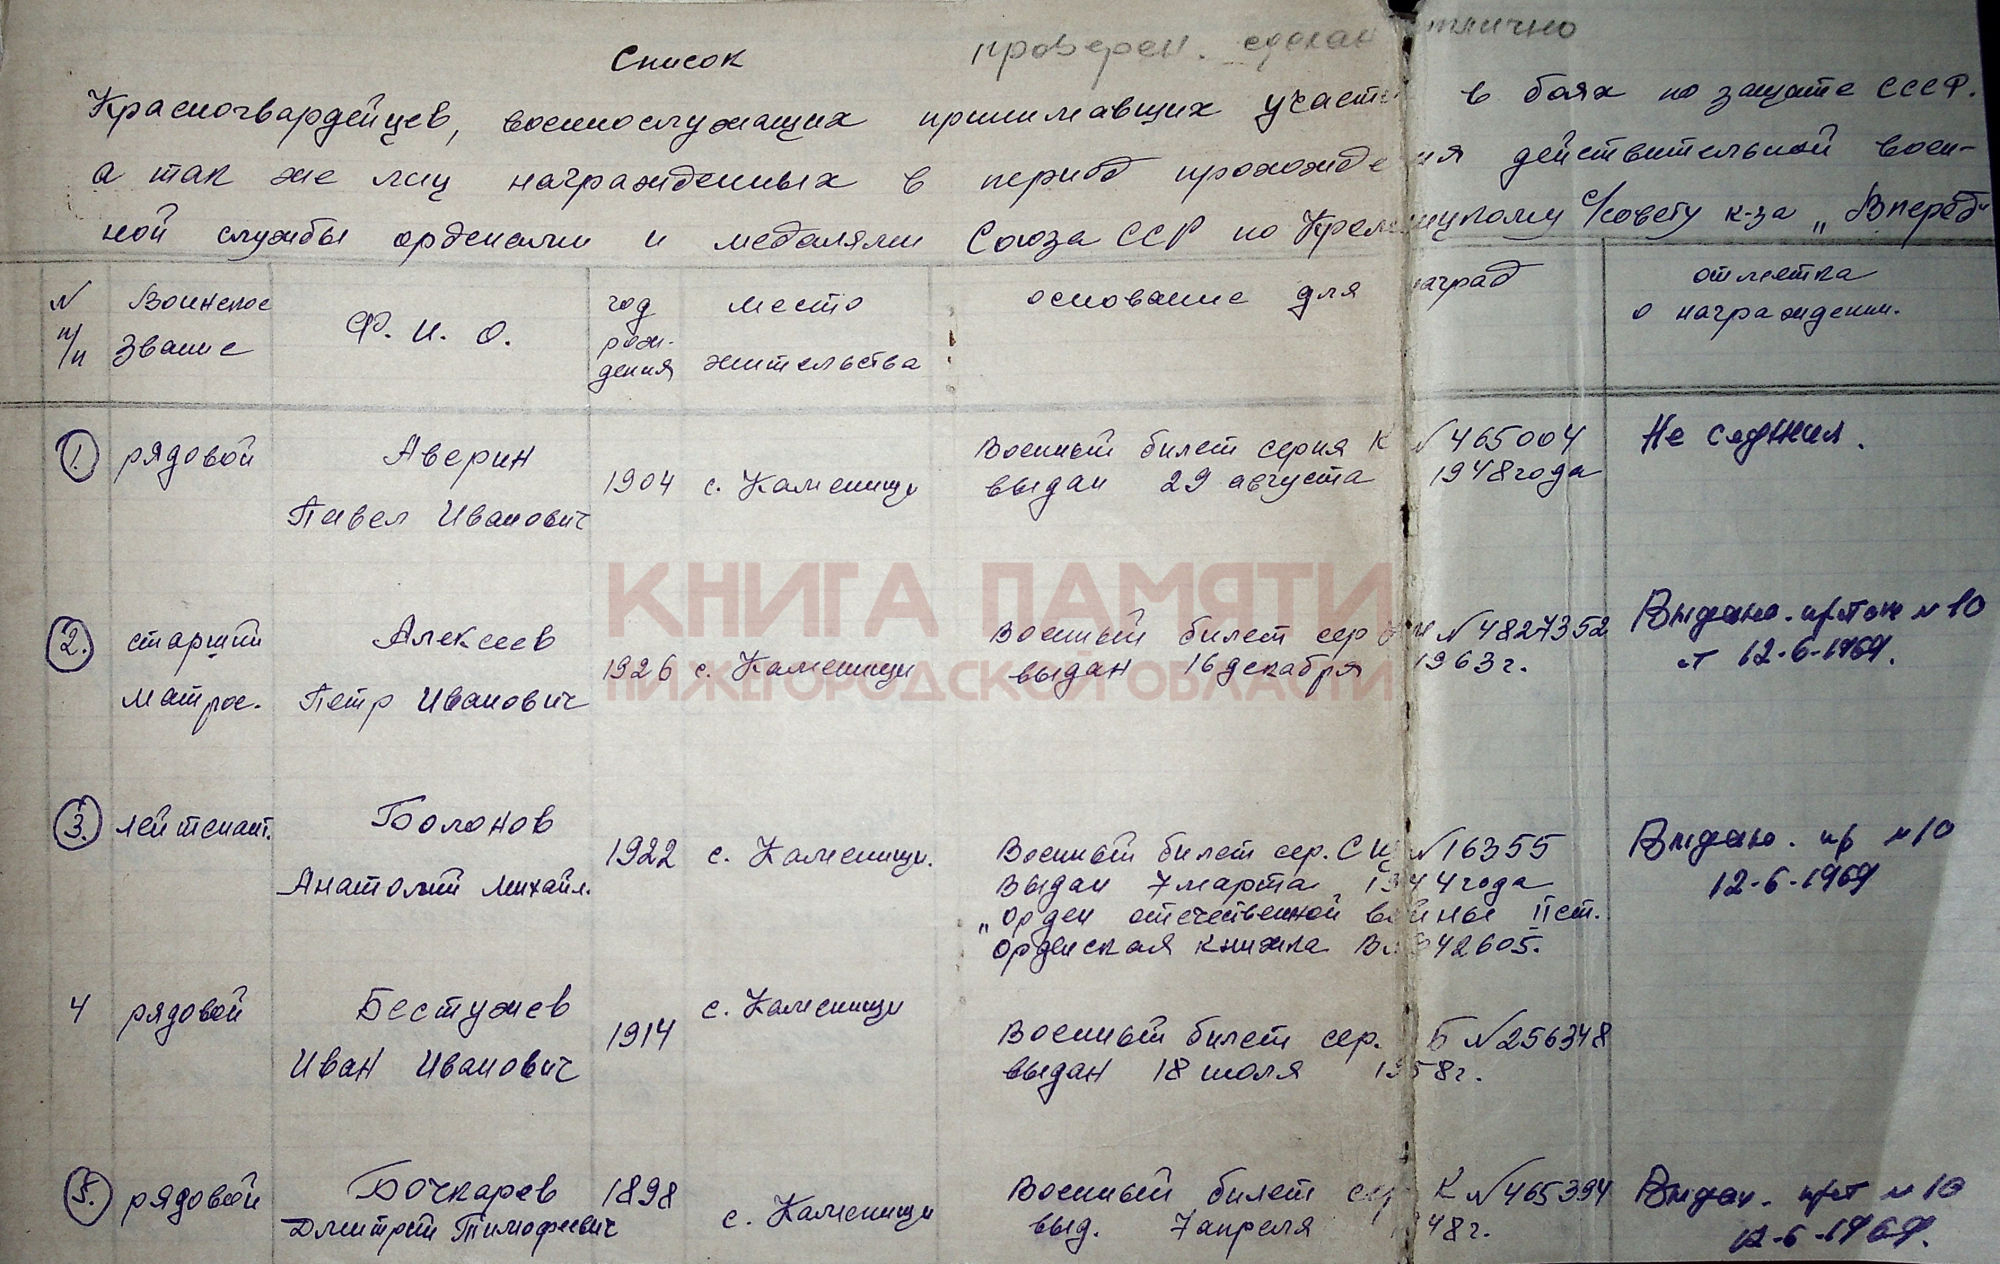 Список
проверен. сделан отлично
Красногвардейцев, военнослужащих принимавших участие в боях по защите СССР.
а так же лиц награжденных в период прохождения действительной воен-
ной службы орденами и медалями Союза ССР по Кременицкому с/совету к-за „Вперёд"
N п/п
Воинское звание
Ф. И. О.
год рождения
место жительства
основание для наград
отметка о награждении.
1. рядовой Аверин Павел Иванович 1904 с. Каменищи
Военный билет серия К N 465004
выдан 29 августа 1948 года
Не служил.
2. старший матрос. Алексеев Петр Иванович 1926 с. Каменищи
Военный билет сер N 4827352
выдан 16 декабря 1963 г.
Выдано. N 10
от 12-6-1969.
КНИГА ПАМЯТИ
НИЖЕГОРОДСКОЙ ОБЛАСТИ
3. лейтенант. Болонов Анатолий Михайл. 1922 с. Каменищи.
Военный билет сер. N 16355
Выдан 7 марта 1944 года
„Орден отечественной войны II ст.
Орденская книжка 42605.
Выдано. пр N 10
12-6-1969
4 рядовой Бестужев Иван Иванович 1914 с. Каменищи
Военный билет сер. Б N 256348
выдан 18 июля 1958 г.
5. рядовой Бочкарев Дмитрий Тимофеевич 1898 с. Каменищи
Военный билет сер К N 465394
выд. 7 апреля 1948 г.
Выдан. N 10
12-6-1969.